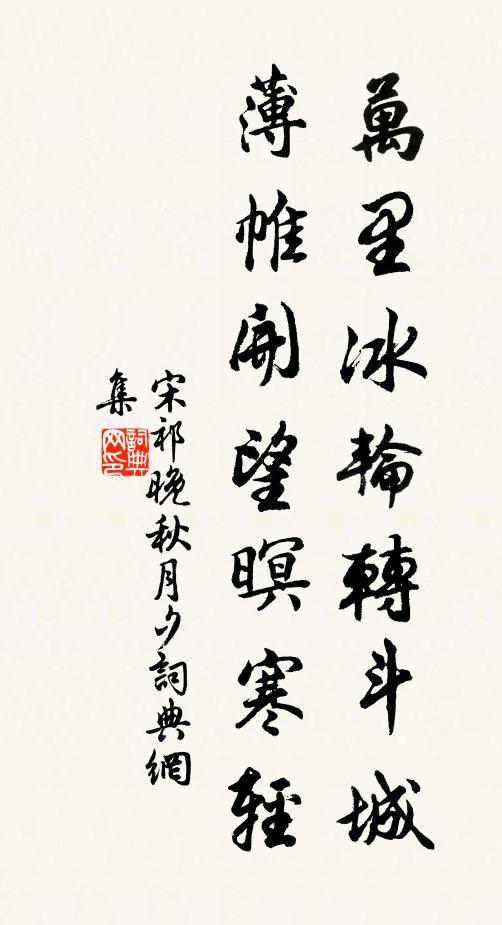 萬里冰輪轉斗城
薄帷開望暝寒輕
宋祁晚秋月夕詞典網
集
詞典
网印